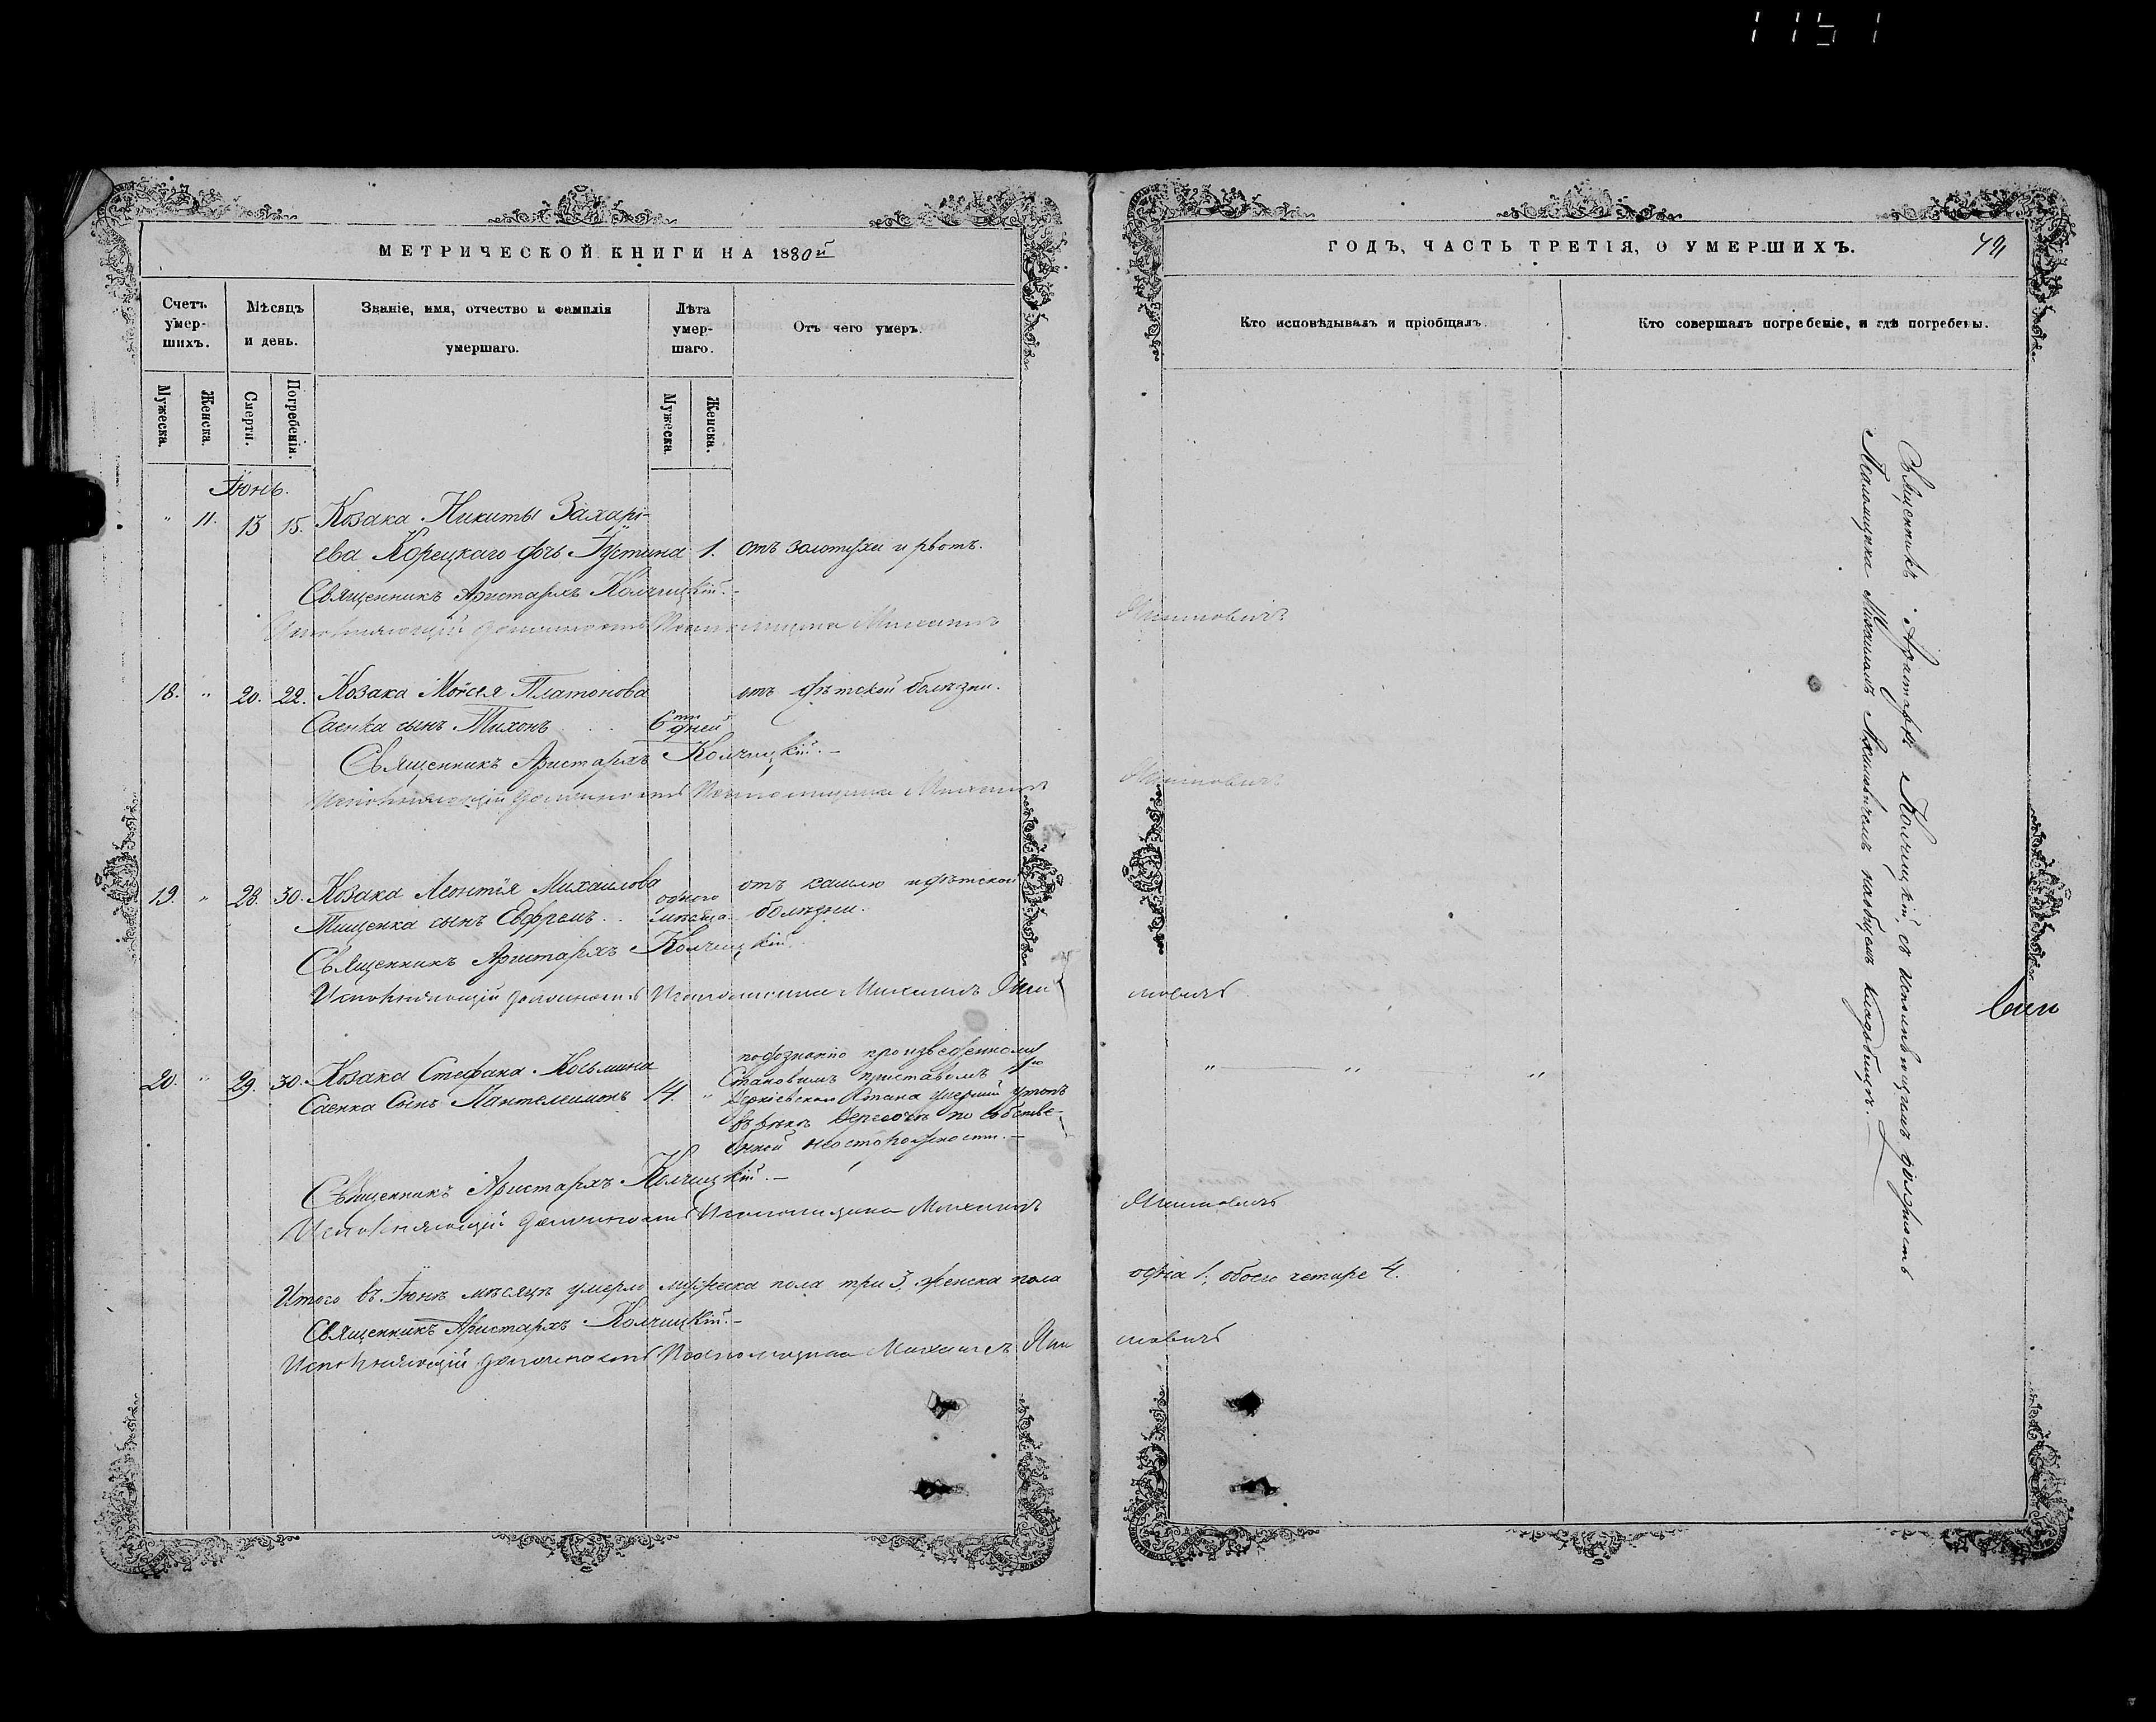 1151
МЕТРИЧЕСКОЙ КНИГИ НА 1880й
Счетъ умер-шихъ.
Мѣсяцъ и день.
Званіе, имя, отчество и фамилія умершаго.
Лѣта умер-шаго.
Отъ чего умеръ.
Мужеска.
Женска.
Смерти.
Погребенія.
Мужеска.
Женска.
Іюнь.
" 11. 13 15. Козака Никиты Захарі-
ева Корецкаго дочь Іустина 1. отъ золотухи и рвотъ.
Священникъ Аристархъ Колчицкій.-
Исполняющій должность Псаломщика Михаилъ
18. " 20. 22. Козака Моисея Платонова отъ дѣтской болѣзни.
Саенка сынъ Тихонъ 6ти дней
Священникъ Аристархъ Колчицкій.-
Исполняющій должность Псаломщика Михаилъ
19. " 28. 30. Козака Леонтія Михаилова одного отъ кашлю и дѣтской
Тищенка сынъ Евфремъ. мѣсяца. болѣзни.
Священникъ Аристархъ Колчицкій.
Исполняющій должность Псаломщика Михаилъ
20. " 29. 30. Козака Стефана Косьмина
Саенка Сынъ Пантелеимонъ 14. "
по дознанію произведенному
Становымъ приставомъ 1го
Стана умерший утопъ
въ рѣкѣ по собстве-
нной неосторожности.-
Священникъ Аристархъ Колчицкій.-
Исполняющій должность Псаломщика Михаилъ
Итого въ Іюнѣ мѣсяцѣ умерло мужеска пола три 3, женска пола
Священникъ Аристархъ Колчицкій.-
Исполняющій должность Псаломщика Михаилъ
ГОДЪ, ЧАСТЬ ТРЕТІЯ, О УМЕРШИХЪ.
Кто исповѣдывалъ и пріобщалъ.
Кто совершалъ погребеніе, и гдѣ погребены.
" " "
одна 1, обоего четыре 4.
Священникъ Аристархъ Колчицкій съ исполняющимъ должность
Псаломщика Михаиломъ на общемъ кладбищѣ.